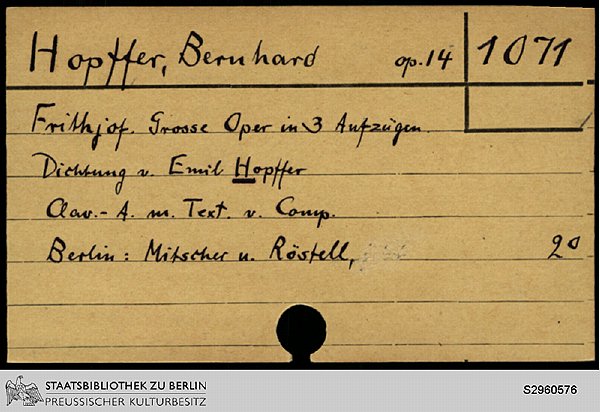 Hopffer, Bernhard op.14 1071
Frithjof. Grosse Oper in 3 Aufzügen.
Dichtung v. Emil Hopffer
Clav.-A. m. Text. v. Comp.
Berlin: Mitscher u. Röstell, 2°
STAATSBIBLIOTHEK ZU BERLIN
PREUSSISCHER KULTURBESITZ
S2960576